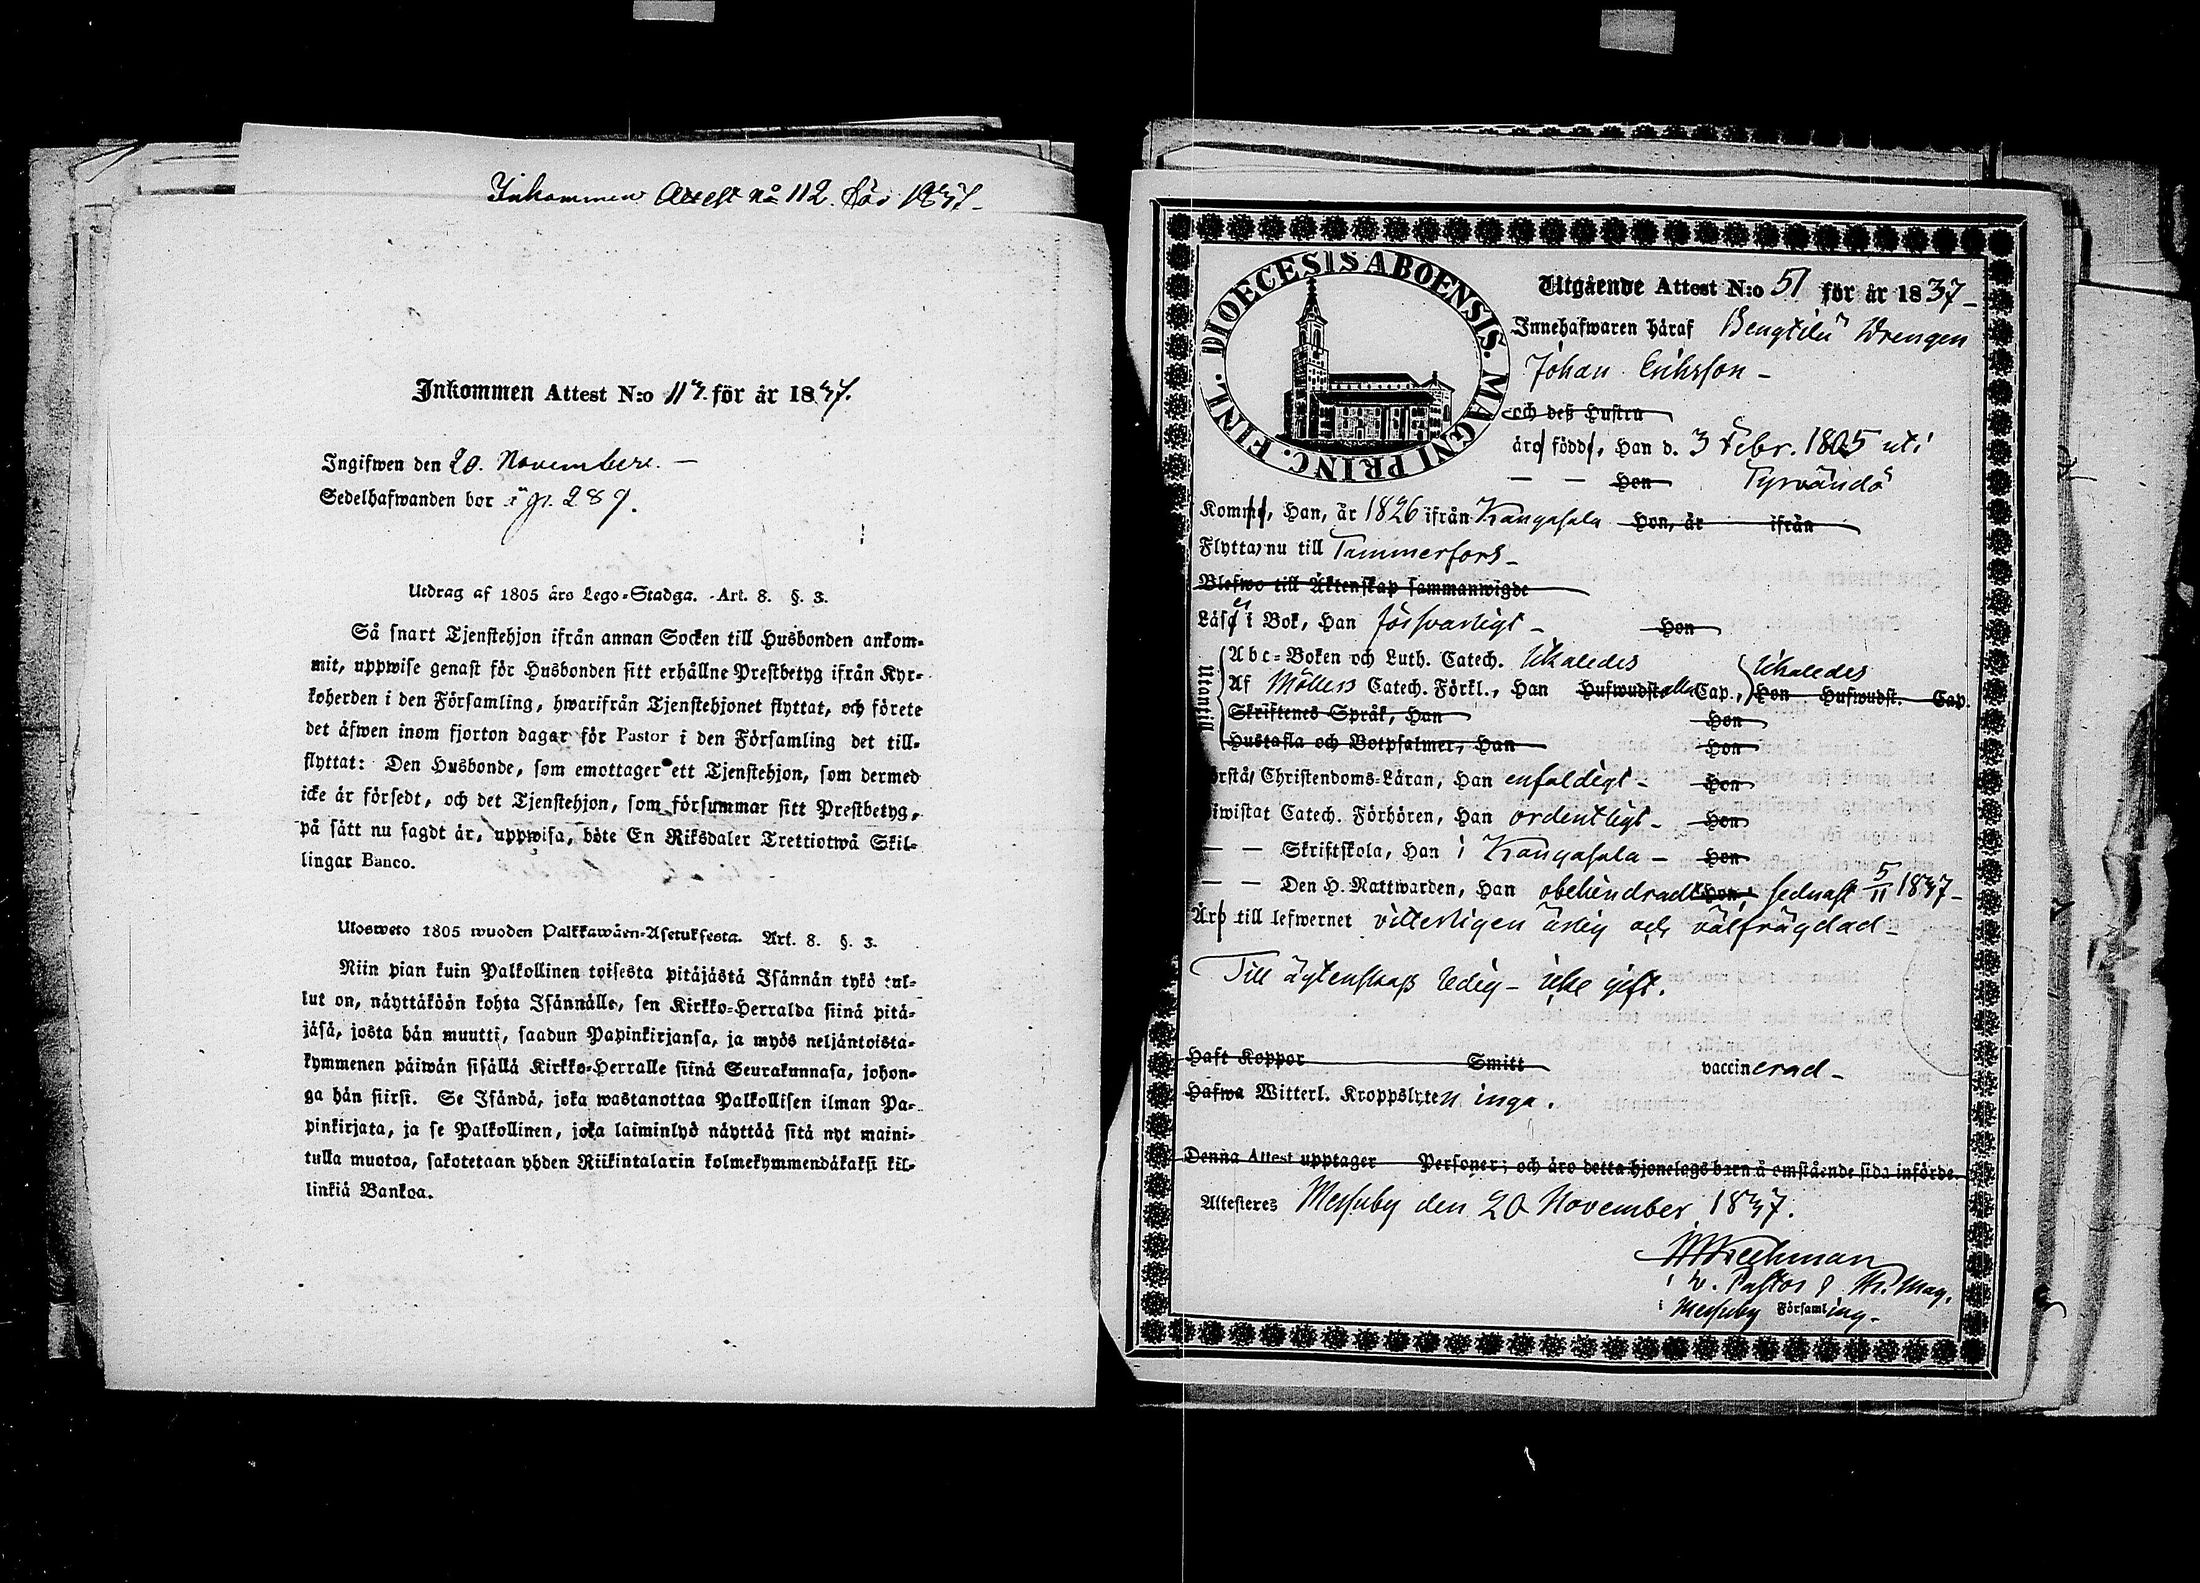 Inkommen Attest No 112. för 1837-
Inkommen Attest N:o 113. för år 1837.
Ingifwen den 20. Novembere. –
Sedelhafwanden bor i gr. 289.
Utdrag af 1805 års Lego-Stadga. Art. 8. §. 3.
Så snart Tjenstehjon ifrån annan Socken till Husbonden ankom-
mit, uppwise genast för Husbonden sitt erhållne Prestbetyg ifrån Kyr-
koherden i den Församling, hwarifrån Tjenstehjonet flyttat, och förete
det äfwen inom fjorton dagar för Pastor i den Församling det till-
flyttat: Den Husbonde, som emottager ett Tjenstehjon, som dermed
icke är försedt, och det Tjenstehjon, som försummar sitt Prestbetyg,
på sätt nu sagdt är, uppwisa, böte En Riksdaler Trettiotwå Skil-
lingar Banco.
Ulosweto 1805 wuoden Palkkawäen-Asetuksesta. Art. 8. §. 3.
Niin pian kuin Palkollinen toisesta pitäjästä Isännän tykö tul-
lut on, näyttäköön kohta Isännälle, sen Kirkko-Herralda siinä pitä-
jäsä, josta hän muutti, saadun Papinkirjansa, ja myös neljäntoista-
kymmenen päiwän sisällä Kirkko-Herralle siinä Seurakunnasa, johon-
ga hän siirsi. Se Isändä, joka wastanottaa Palkollisen ilman Pa-
pinkirjata, ja se Palkollinen, joka laiminlyö näyttää sitä nyt maini-
tulla muotoa, sakotetaan yhden Riikintalarin kolmekymmendäkaksi kil-
linkiä Bankoa.
DIOECESIS ABOENSIS. MAGNI PRINC. FINL.
Utgående Attest N:o 51 för år 1837-
Innehafwaren häraf Bengtilä Drengen
Johan Eriksson -
och deß Hustru
äro född, Han d. 3 Febr. 1805 uti
— — Hon Tyrvändö
Kommit, Han, år 1826 ifrån Kangasala Hon, år ifrån
Flyttar nu till Tammerfors -
Blefwo till Äktenskap sammanwigde
Läser i Bok, Han försvarligt - Hon
Utantill
Abc-Boken och Luth. Catech. likaledes
Af Möllers Catech. Förkl., Han Hufwudst. alla Cap., likaledes Hon Hufwudst. Cap.
Skriftenes Språk, Han Hon
Hustafla och Botpsalmer, Han Hon
örstår Christendoms-Läran, Han enfaldigt - Hon
iwistat Catech. Förhören, Han ordentligt - Hon
— — Skriftskola, Han i Kangasala - Hon
— — Den H. Nattwarden, Han obehindradt Hon, sednast 5/11 1837-
Äro till lefwernet vitterligen ärlig och välfrägdad -
Till ägtenskap ledig - icke gift.
Haft Koppor Smitt vaccinerad -
Hafwa Witterl. Kroppslyten inga.
Denna Attest upptager Personer; och äro detta hjonelags barn å omstående sida införde.
Attesteras Messuby den 20 November 1837.
i Messuby Församling.